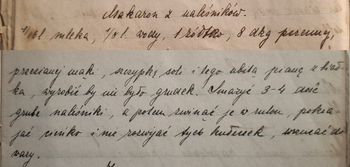 Makaron z naleśników.
1/8 l. mleka, 1/8 l. wody, 1 żółtko, 8 dkg pszennej,
przesianej mąki, szczyptę soli i tego ubitą pianę z białka
ka, wyrobić by nie było grudek. Smażyć 3-4 dość
grube naleśniki, a potem zwinąć je w rulon, pokra-
jać cienko i nie rozwijać tych kluseczek, wrzucać do
wazy.